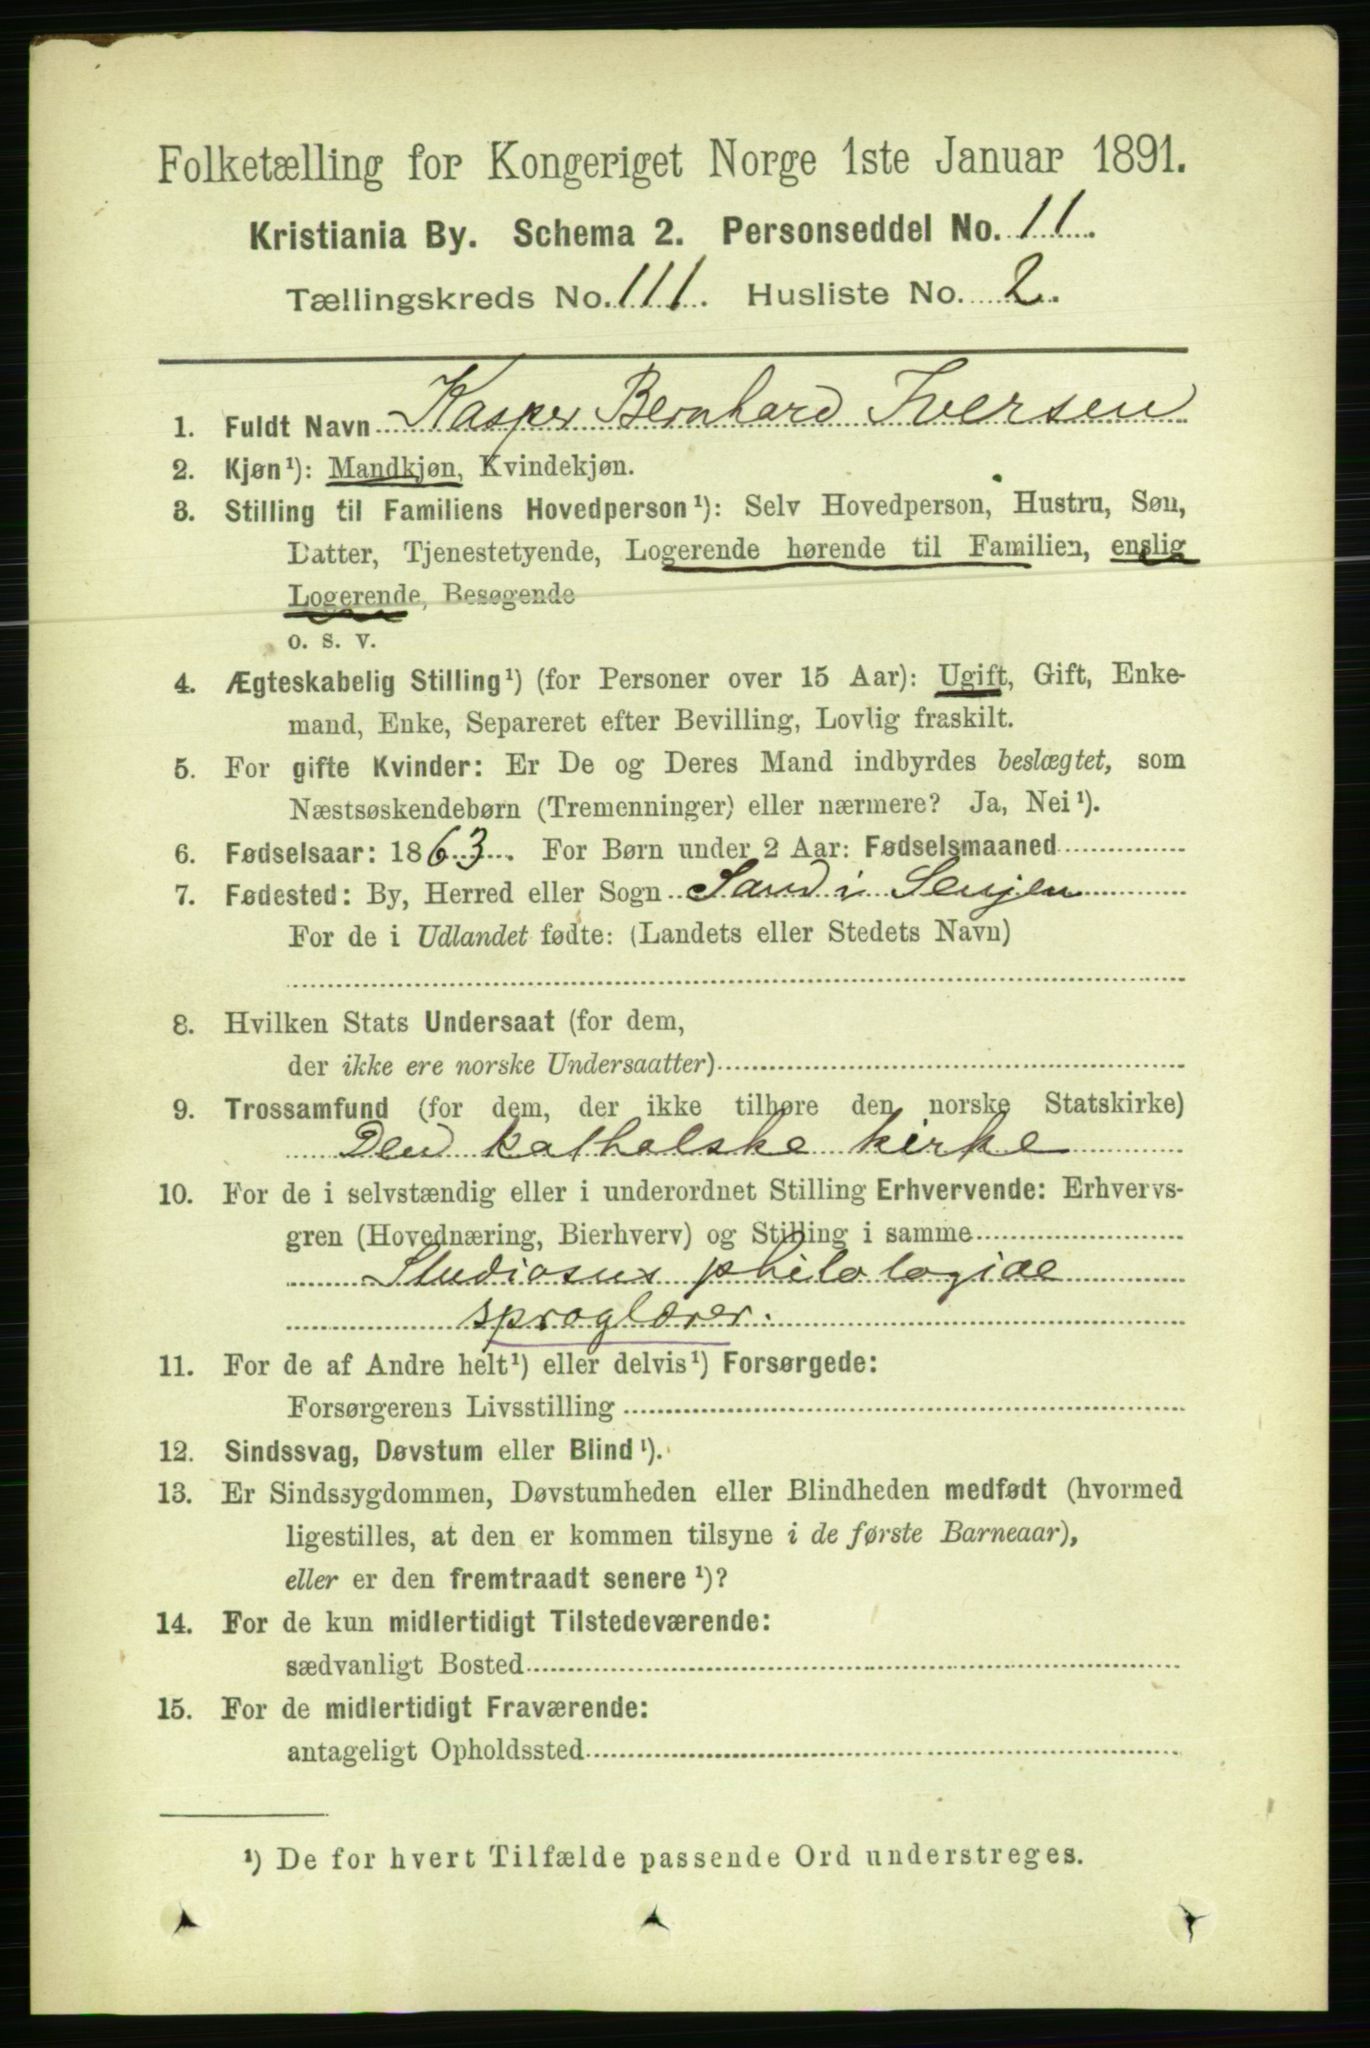 Folketælling for Kongeriget Norge 1ste Januar 1891.
Kristiania By. Schema 2. Personseddel No. 11.
Tællingskreds No. 111. Husliste No. 2.
1. Fuldt Navn Kasper Bernhard Iversen
2. Kjøn¹): Mandkjøn, Kvindekjøn.
3. Stilling til Familiens Hovedperson¹): Selv Hovedperson, Hustru, Søn,
Datter, Tjenestetyende, Logerende hørende til Familien, enslig
Logerende, Besøgende
o. s. v.
4. Ægteskabelig Stilling¹) (for Personer over 15 Aar): Ugift, Gift, Enke-
mand, Enke, Separeret efter Bevilling, Lovlig fraskilt.
5. For gifte Kvinder: Er De og Deres Mand indbyrdes beslægtet, som
Næstsøskendebørn (Tremenninger) eller nærmere? Ja, Nei¹).
6. Fødselsaar: 1863. For Børn under 2 Aar: Fødselsmaaned
7. Fødested: By, Herred eller Sogn Sand i Senjen
For de i Udlandet fødte: (Landets eller Stedets Navn)
8. Hvilken Stats Undersaat (for dem,
der ikke ere norske Undersaatter)
9. Trossamfund (for dem, der ikke tilhøre den norske Statskirke)
Den katholske kirke
10. For de i selvstændig eller i underordnet Stilling Erhvervende: Erhvervs-
gren (Hovednæring, Bierhverv) og Stilling i samme
Studiosus philologiae
sproglærer.
11. For de af Andre helt¹) eller delvis¹) Forsørgede:
Forsørgerens Livsstilling
12. Sindssvag, Døvstum eller Blind¹).
13. Er Sindssygdommen, Døvstumheden eller Blindheden medfødt (hvormed
ligestilles, at den er kommen tilsyne i de første Barneaar),
eller er den fremtraadt senere¹)?
14. For de kun midlertidigt Tilstedeværende:
sædvanligt Bosted
15. For de midlertidigt Fraværende:
antageligt Opholdssted
¹) De for hvert Tilfælde passende Ord understreges.